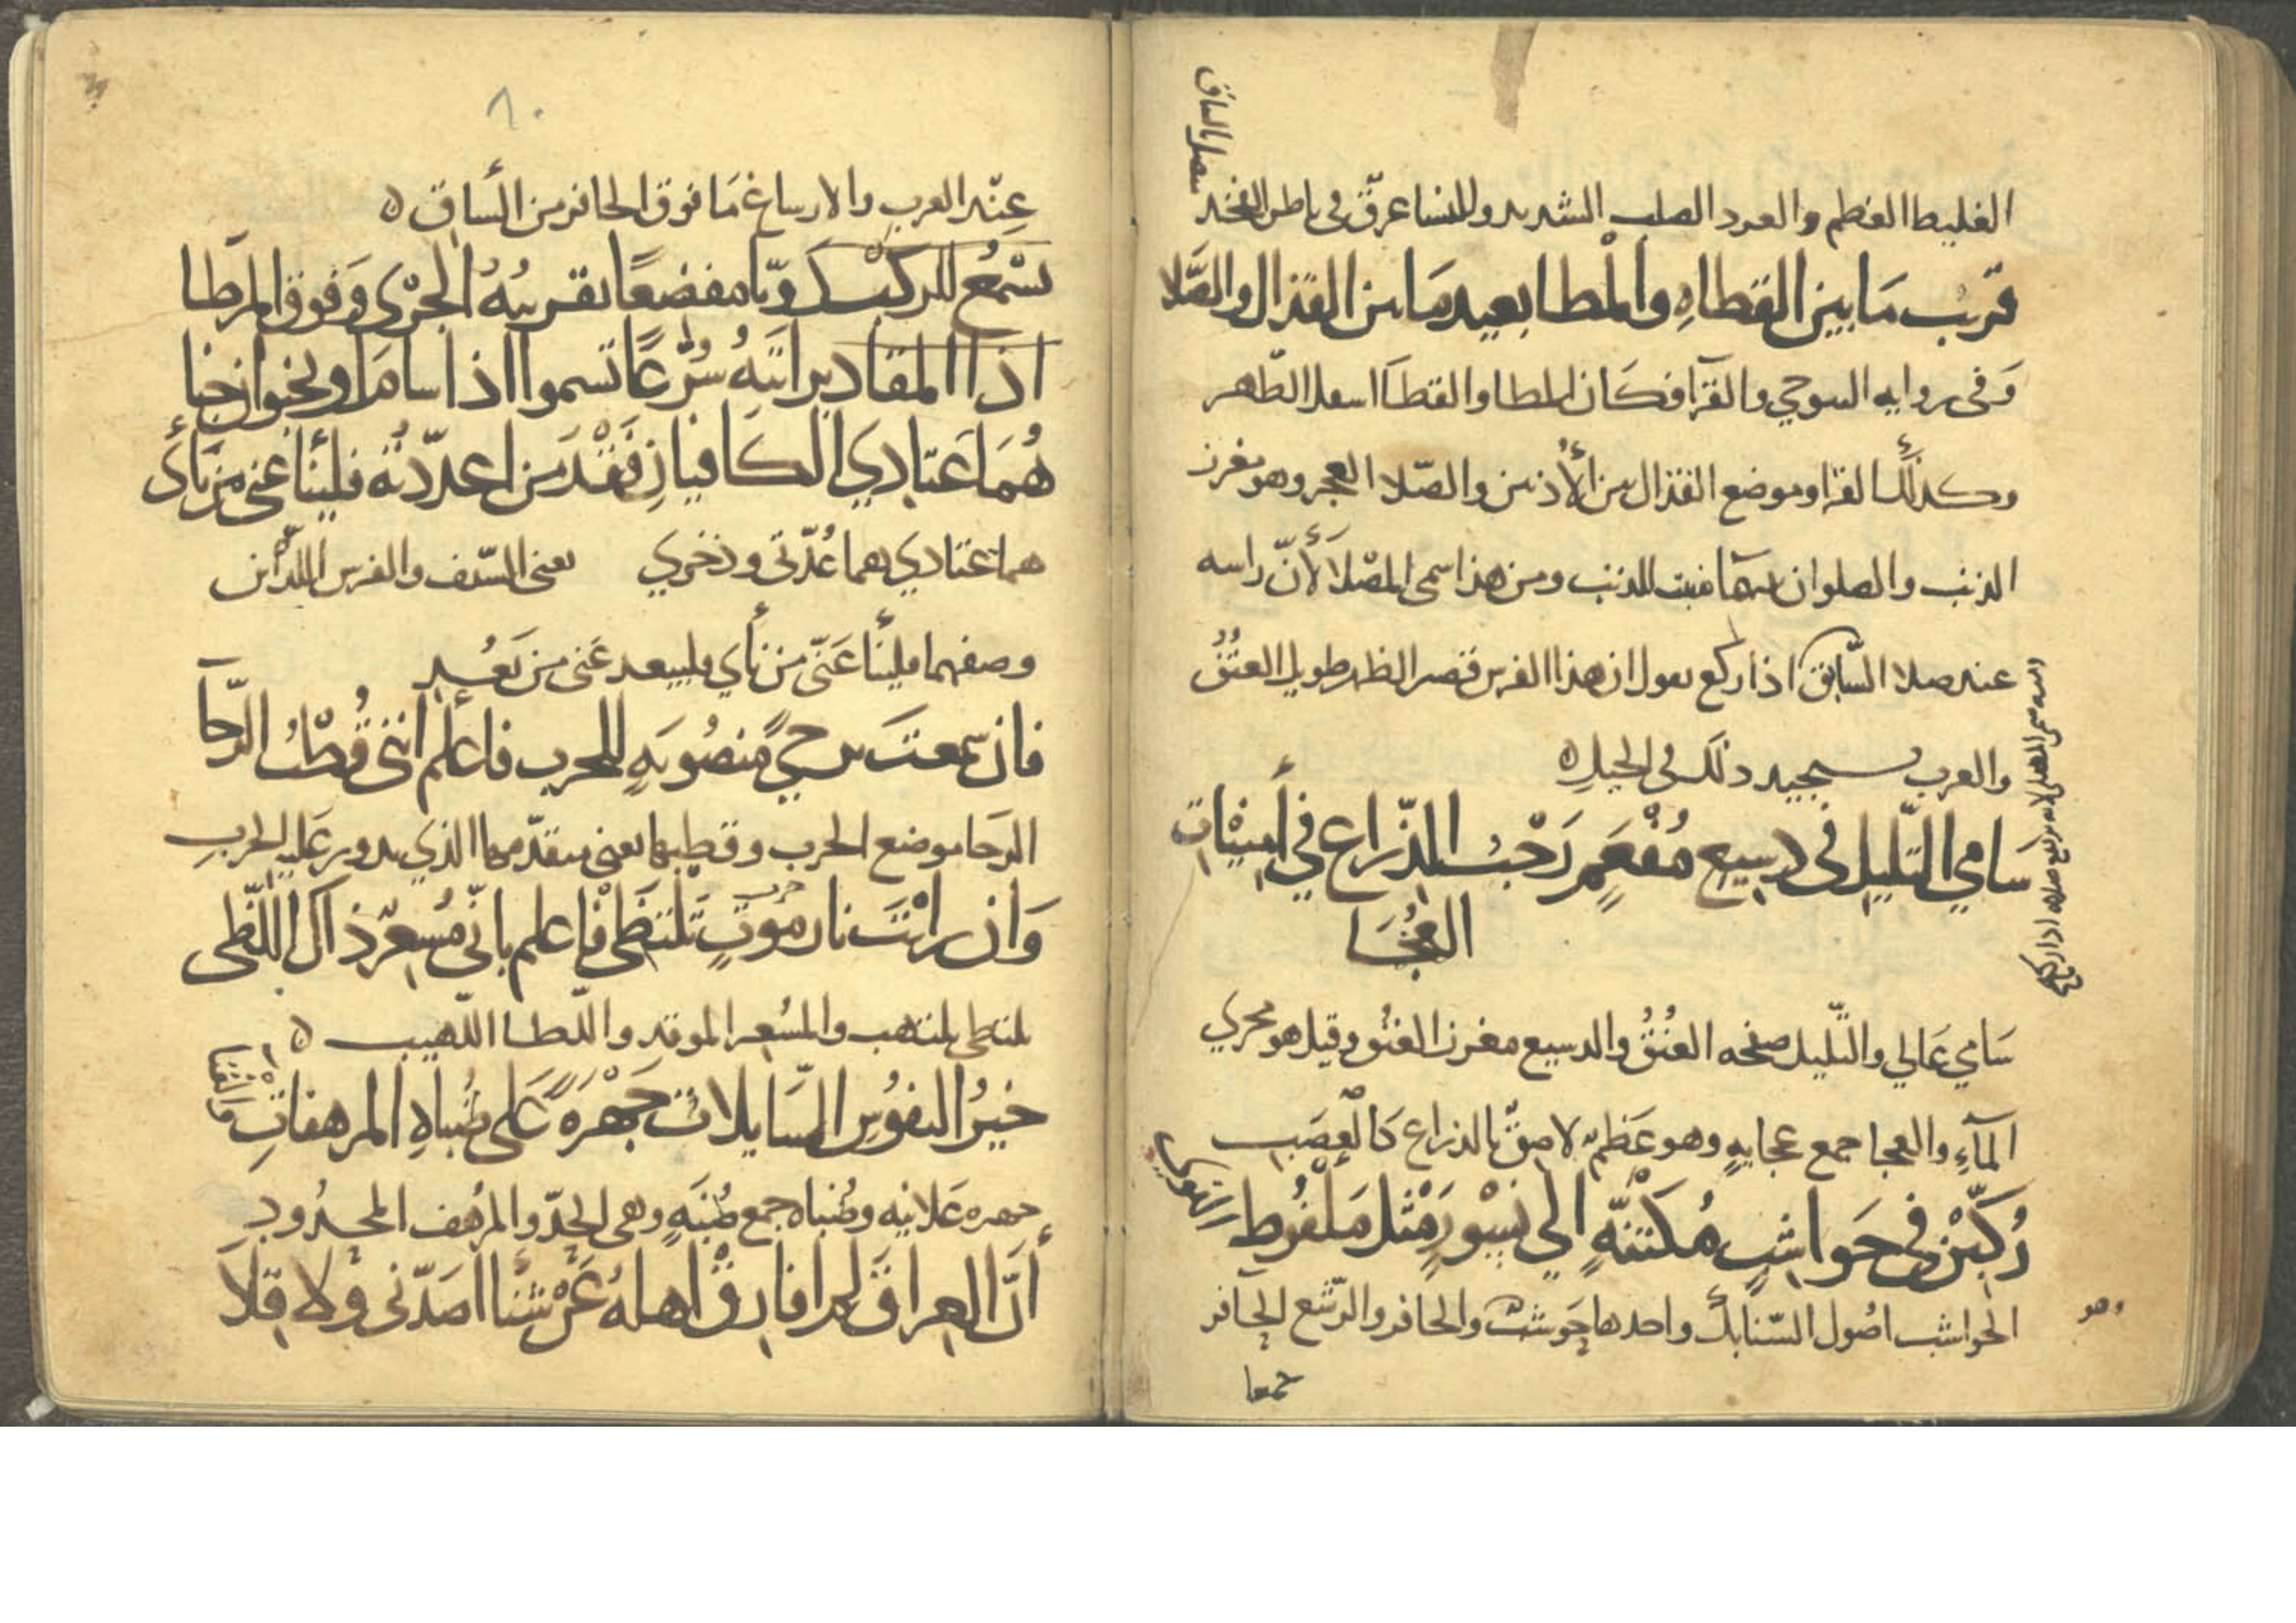 الغليط العظم والعرد الصلب الشديد والنسا عرق في باطن الفخد
قريب مَا بين القطاهِ والمطا بعيد مَا بين القذال والصَّلا
وَفى روايه السوحي والقرَا فكان المطا والقطا اسفل الظَّهر
وكذلك القرا وموضع القذال بين الأذنين والصّلا العجز وهو مغرز
الذنب والصلوان منبت للذنب ومن هذا سمى المصلا لأنّ راسه
عند صلا السَّابق اذا ركع يقول ان هذا الفرس قصير الظهر طويل العنُقُ
والعرب تستجيد ذلك في الخيل ه
سَامي التّليل فى دسيع مُفْعَمٍ رَحْبُ الذّراع في أمينات
العُجَا
سَامي عَالي والتّليل صفحه العُنُقُ والدسيع مغرز العنُق وقيل هو مجري
المآءِ والعجا جمع عجايهٍ وهو عَظمٌ لاصقٌ بالذراع كالعصَب
رُكّبْنَ فى حَواشبٍ مُكتنّهٍ الي نسُورٍ مثل مَلْفُوط
الحواشب اصُول السّنابك واحدها حَوشب والحافر والرّسّغ الحَافر
وهو
٨٠
عِنْد العرب والارساغ مَا فوق الحافر من السَّاق ه
تسْمَعُ للركب دويًا مفضعًا تقريبُهُ الجرْى وَفوق المرَطا
اذا المقادير اتتهُ سُرّعًا تسموا اذا ساما وينحوا ان نحا
هُمَا عَتادي الكافيان فَقْدَ مَن اعددّتهُ فلينأ عَني مَن نأى
هما عتادي هما عُدّتى وذخري يعنى السّيف والفرس اللذَين
وصفهما فلينأ عَنّى من نأي فليبعد عَنى من بَعُد
فان سمعتَ برحيً منصُوبَهٍ للحرب فاعلم انني قُطْبُ الرَّحَا
الرَحا موضع الحرب وقطبها يعني متقدّمها الذي يدور عَليه الحربِ
وَان رايْتَ نار موْتٍ تلتظى فاعلم باني مُسعِرٌ ذاك اللّظى
تلتظى تلتهب والمسُعر الموقد واللّطا اللّهيب ه
خيرُ النفوُسِ السَّايلاتُ جَهْرَةً عَلى ظُباهِ المرهفاتِ
جهره عَلانيه وظُباه جمع ظُبَهٍ وهى الحدّ والمرُهف المحدُود
أنَّ العِراق لم افارق اهلهُ عَنْ شنأ اصَدّنى وَلا قِلَا